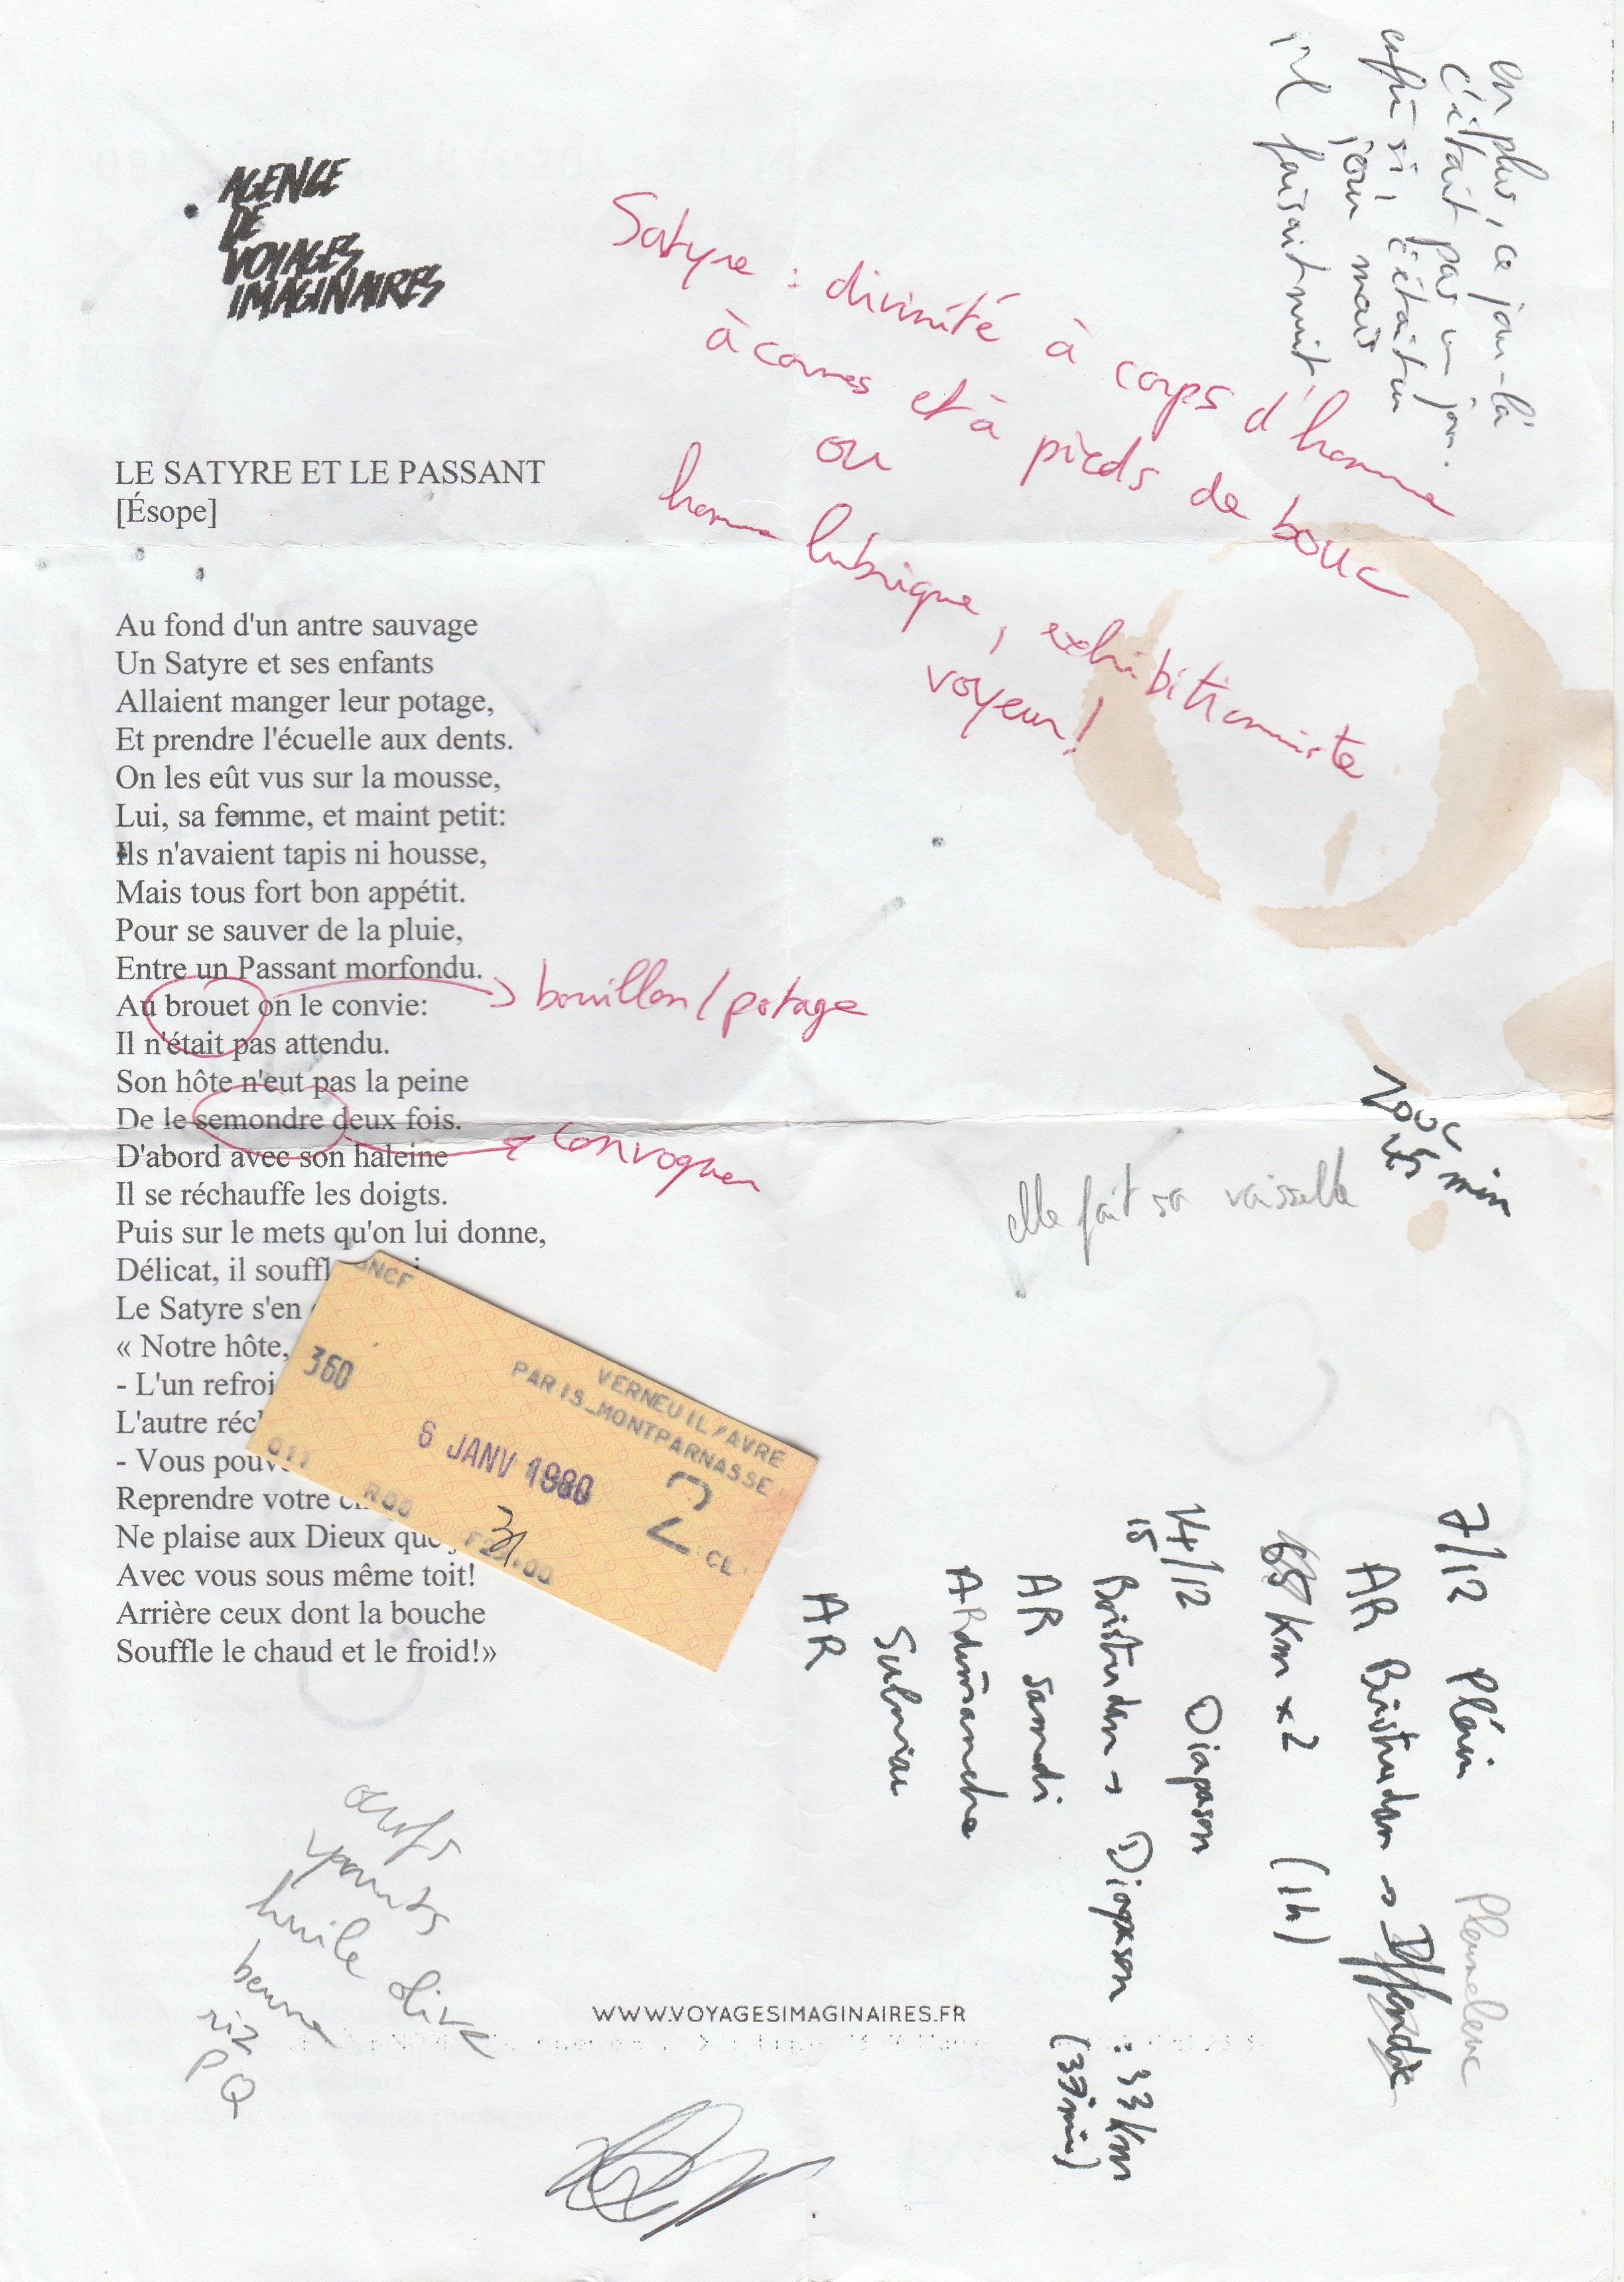 AGENCE
DE
VOYAGES
IMAGINAIRES
en plus, ce jour-là
c'était pas un jour.
enfin si, c'était un
jour mais
il faisait nuit
Satyre : divinité à corps d'homme
à cornes et à pieds de bouc
ou
homme lubrique, exhibitionniste
voyeur!
LE SATYRE ET LE PASSANT
[Ésope]
Au fond d'un antre sauvage
Un Satyre et ses enfants
Allaient manger leur potage,
Et prendre l'écuelle aux dents.
On les eût vus sur la mousse,
Lui, sa femme, et maint petit:
Ils n'avaient tapis ni housse,
Mais tous fort bon appétit.
Pour se sauver de la pluie,
Entre un Passant morfondu.
Au brouet on le convie:
bouillon / potage
Il n'était pas attendu.
Son hôte n'eut pas la peine
De le semondre deux fois.
convoquer
D'abord avec son haleine
Il se réchauffe les doigts.
Puis sur le mets qu'on lui donne,
Délicat, il souffl
Le Satyre s'en
« Notre hôte,
- L'un refroi
L'autre réc
- Vous pouv
Reprendre votre
Ne plaise aux Dieux que
Avec vous sous même toit!
Arrière ceux dont la bouche
Souffle le chaud et le froid!»
zouc
45 min
elle fait sa vaisselle
SNCF
360
VERNEUIL/AVRE
PARIS_MONTPARNASSE
6 JANV 1980
2 CL
011 R00 F 31.00
7/12 Plérin
AR Boistrudan →
65 km x 2 (1h)
14/12 Diapason
15
Boistrudan → Diapason : 33 km
(37 min)
AR samedi
AR dimanche
Sulniac
AR
oeufs
yaourts
huile olive
beurre
riz
PQ
WWW.VOYAGESIMAGINAIRES.FR